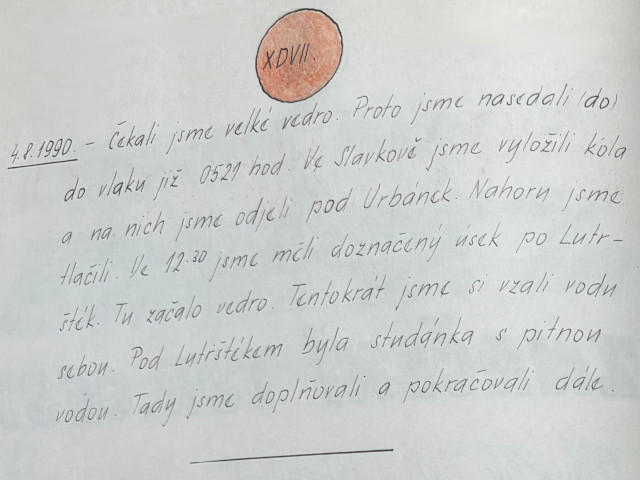 XDVII.
4.8.1990. - Čekali jsme velké vedro. Proto jsme nasedali (do)
do vlaku již 0521 hod. Ve Slavkově jsme vyložili kola
a na nich jsme odjeli pod Urbánek. Nahoru jsme
tlačili. Ve 12.30 jsme měli doznačený úsek po Lutr-
šték. Tu začalo vedro. Tentokrát jsme si vzali vodu
sebou. Pod Lutrštékem byla studánka s pitnou
vodou. Tady jsme doplňovali a pokračovali dále.